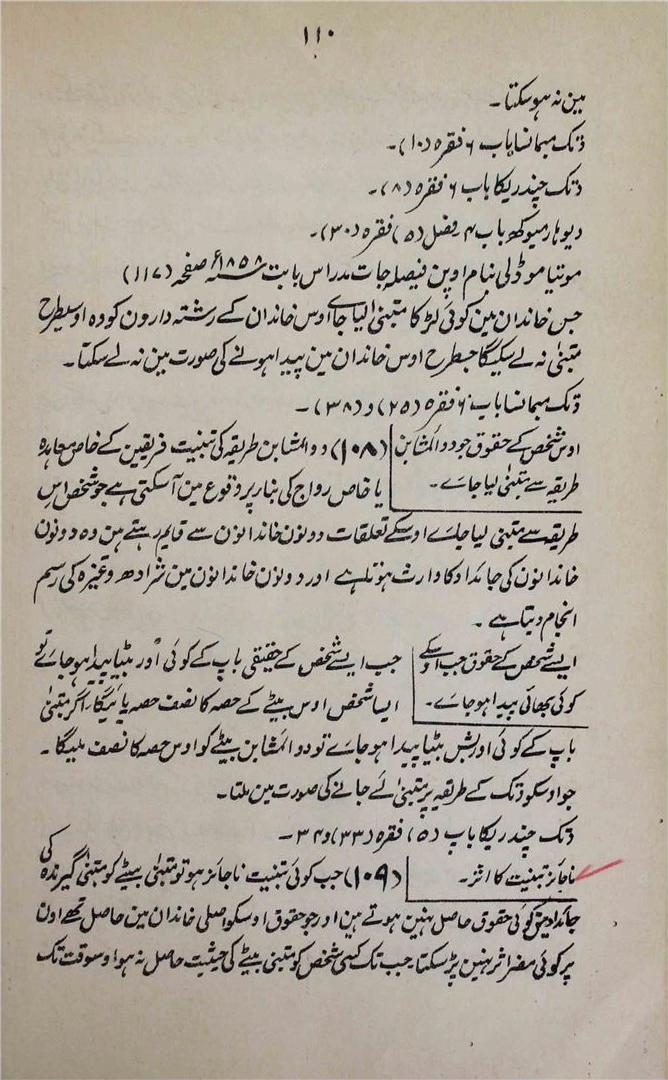 ۱۱۰
مین نہ ہوسکتا۔
دتک میمانسا باب ۶ فقرہ (۱۰)۔
دتک چندریکا باب ۶ فقرہ (۸)۔
دیوہار میوکھ باب ۴ فصل (۵) فقرہ (۳۰)۔
موتیا موڈلی بنام اوپن فیصلہ جات مدراس بابت ۱۸۵۸ء صفحہ (۱۱۷)
جس خاندان مین کوئی لڑکا متبنیٰ لیا جاے اوس خاندان کے رشتہ دارون کو وہ اوسیطرح
متبنیٰ نہ لے سکیگا جسطرح اوس خاندان مین پیدا ہونے کی صورت مین نہ لے سکتا۔
دتک میمانسا باب ۶ فقرہ (۲۵) و (۳۸)۔
اوس شخص کے حقوق جو دوالمشابن
طریقہ سے متبنیٰ لیا جاے۔
(۱۰۸) دوالمشابن طریقہ کی تبنیت فریقین کے خاص معاہدہ
یا خاص رواج کی بنار پر وقوع مین آسکتی ہے جو شخص اس
طریقہ سے متبنیٰ لیا جاے اوسکے تعلقات دونون خاندانون سے قایم رہتے ہین وہ دونون
خاندانون کی جائداد کا وارث ہوتا ہے اور دونون خاندانون مین شرادھ وغیرہ کی رسم
انجام دیتا ہے۔
ایسے شخص کے حقوق جب اوسکے
کوئی بھائی پیدا ہو جاے۔
جب ایسے شخص کے حقیقی باپ کے کوئی اور بیٹا پیدا ہو جاے تو
ایسا شخص اوس بیٹے کے حصہ کا نصف حصہ پائیگا۔ اگر متبنیٰ
باپ کے کوئی اورس بیٹا پیدا ہو جاے تو دوالمشابن بیٹے کو اوس حصہ کا نصف ملیگا۔
جو اوسکو دتک کے طریقہ پر متبنیٰ لئے جانے کی صورت مین ملتا۔
دتک چندریکا باب (۵) فقرہ (۳۳) و ۳۴۔
ناجائز تبنیت کا اثر۔
(۱۰۹) جب کوئی تبنیت ناجائز ہو تو متبنیٰ بیٹے کو متبنیٰ گیرندہ کی
جائداد مین کوئی حقوق حاصل نہین ہوتے ہین اور جو حقوق اوسکو اصلی خاندان مین حاصل تھے اون
پر کوئی مضر اثر نہین پڑسکتا۔ جب تک کسی شخص کو متبنیٰ بیٹے کی حیثیت حاصل نہ ہو اوسوقت تک